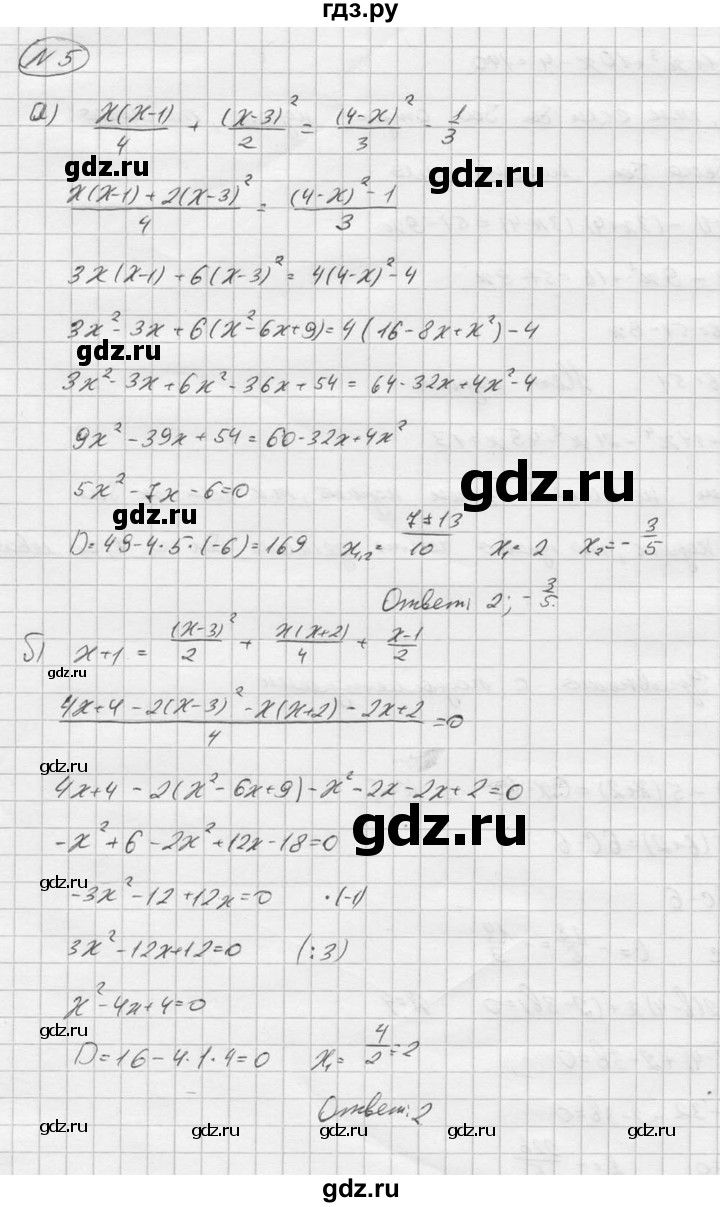 гдз.ру
N 5
а) x(x-1)/4 + (x-3)²/2 = (4-x)²/3 - 1/3
gdz.ru
(x(x-1)+2(x-3)²)/4 = ((4-x)²-1)/3
gdz.ru
3x(x-1)+6(x-3)² = 4(4-x)²-4
3x²-3x+6(x²-6x+9)=4(16-8x+x²)-4
gdz.ru
3x²-3x+6x²-36x+54 = 64-32x+4x²-4
9x²-39x+54=60-32x+4x²
gdz.ru
5x²-7x-6=0
gdz.ru
D=49-4·5·(-6)=169 x₁,₂= (7±13)/10 x₁= 2 x₂= -3/5
Ответ: 2; -3/5.
б) x+1 = (x-3)²/2 + x(x+2)/4 + (x-1)/2
gdz.ru
(4x+4-2(x-3)²-x(x+2)-2x+2)/4 =0
gdz.ru
4x+4-2(x²-6x+9)-x²-2x-2x+2=0
gdz.ru
-x²+6-2x²+12x-18=0
gdz.ru
-3x²-12+12x=0 ·(-1)
3x²-12x+12=0 (:3)
x²-4x+4=0
gdz.ru
D=16-4·1·4=0 x₁= 4/2=2
Ответ: 2
gdz.ru gdz.ru gdz.ru gdz.ru gdz.ru
gdz.ru